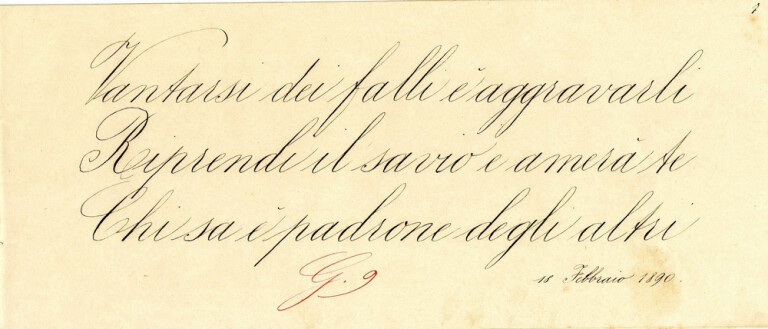 Vantarsi dei falli è aggravarli
Riprendi il savio e amerà te
Chi sa è padrone degli altri
G. 9
18 Febbraio 1890.